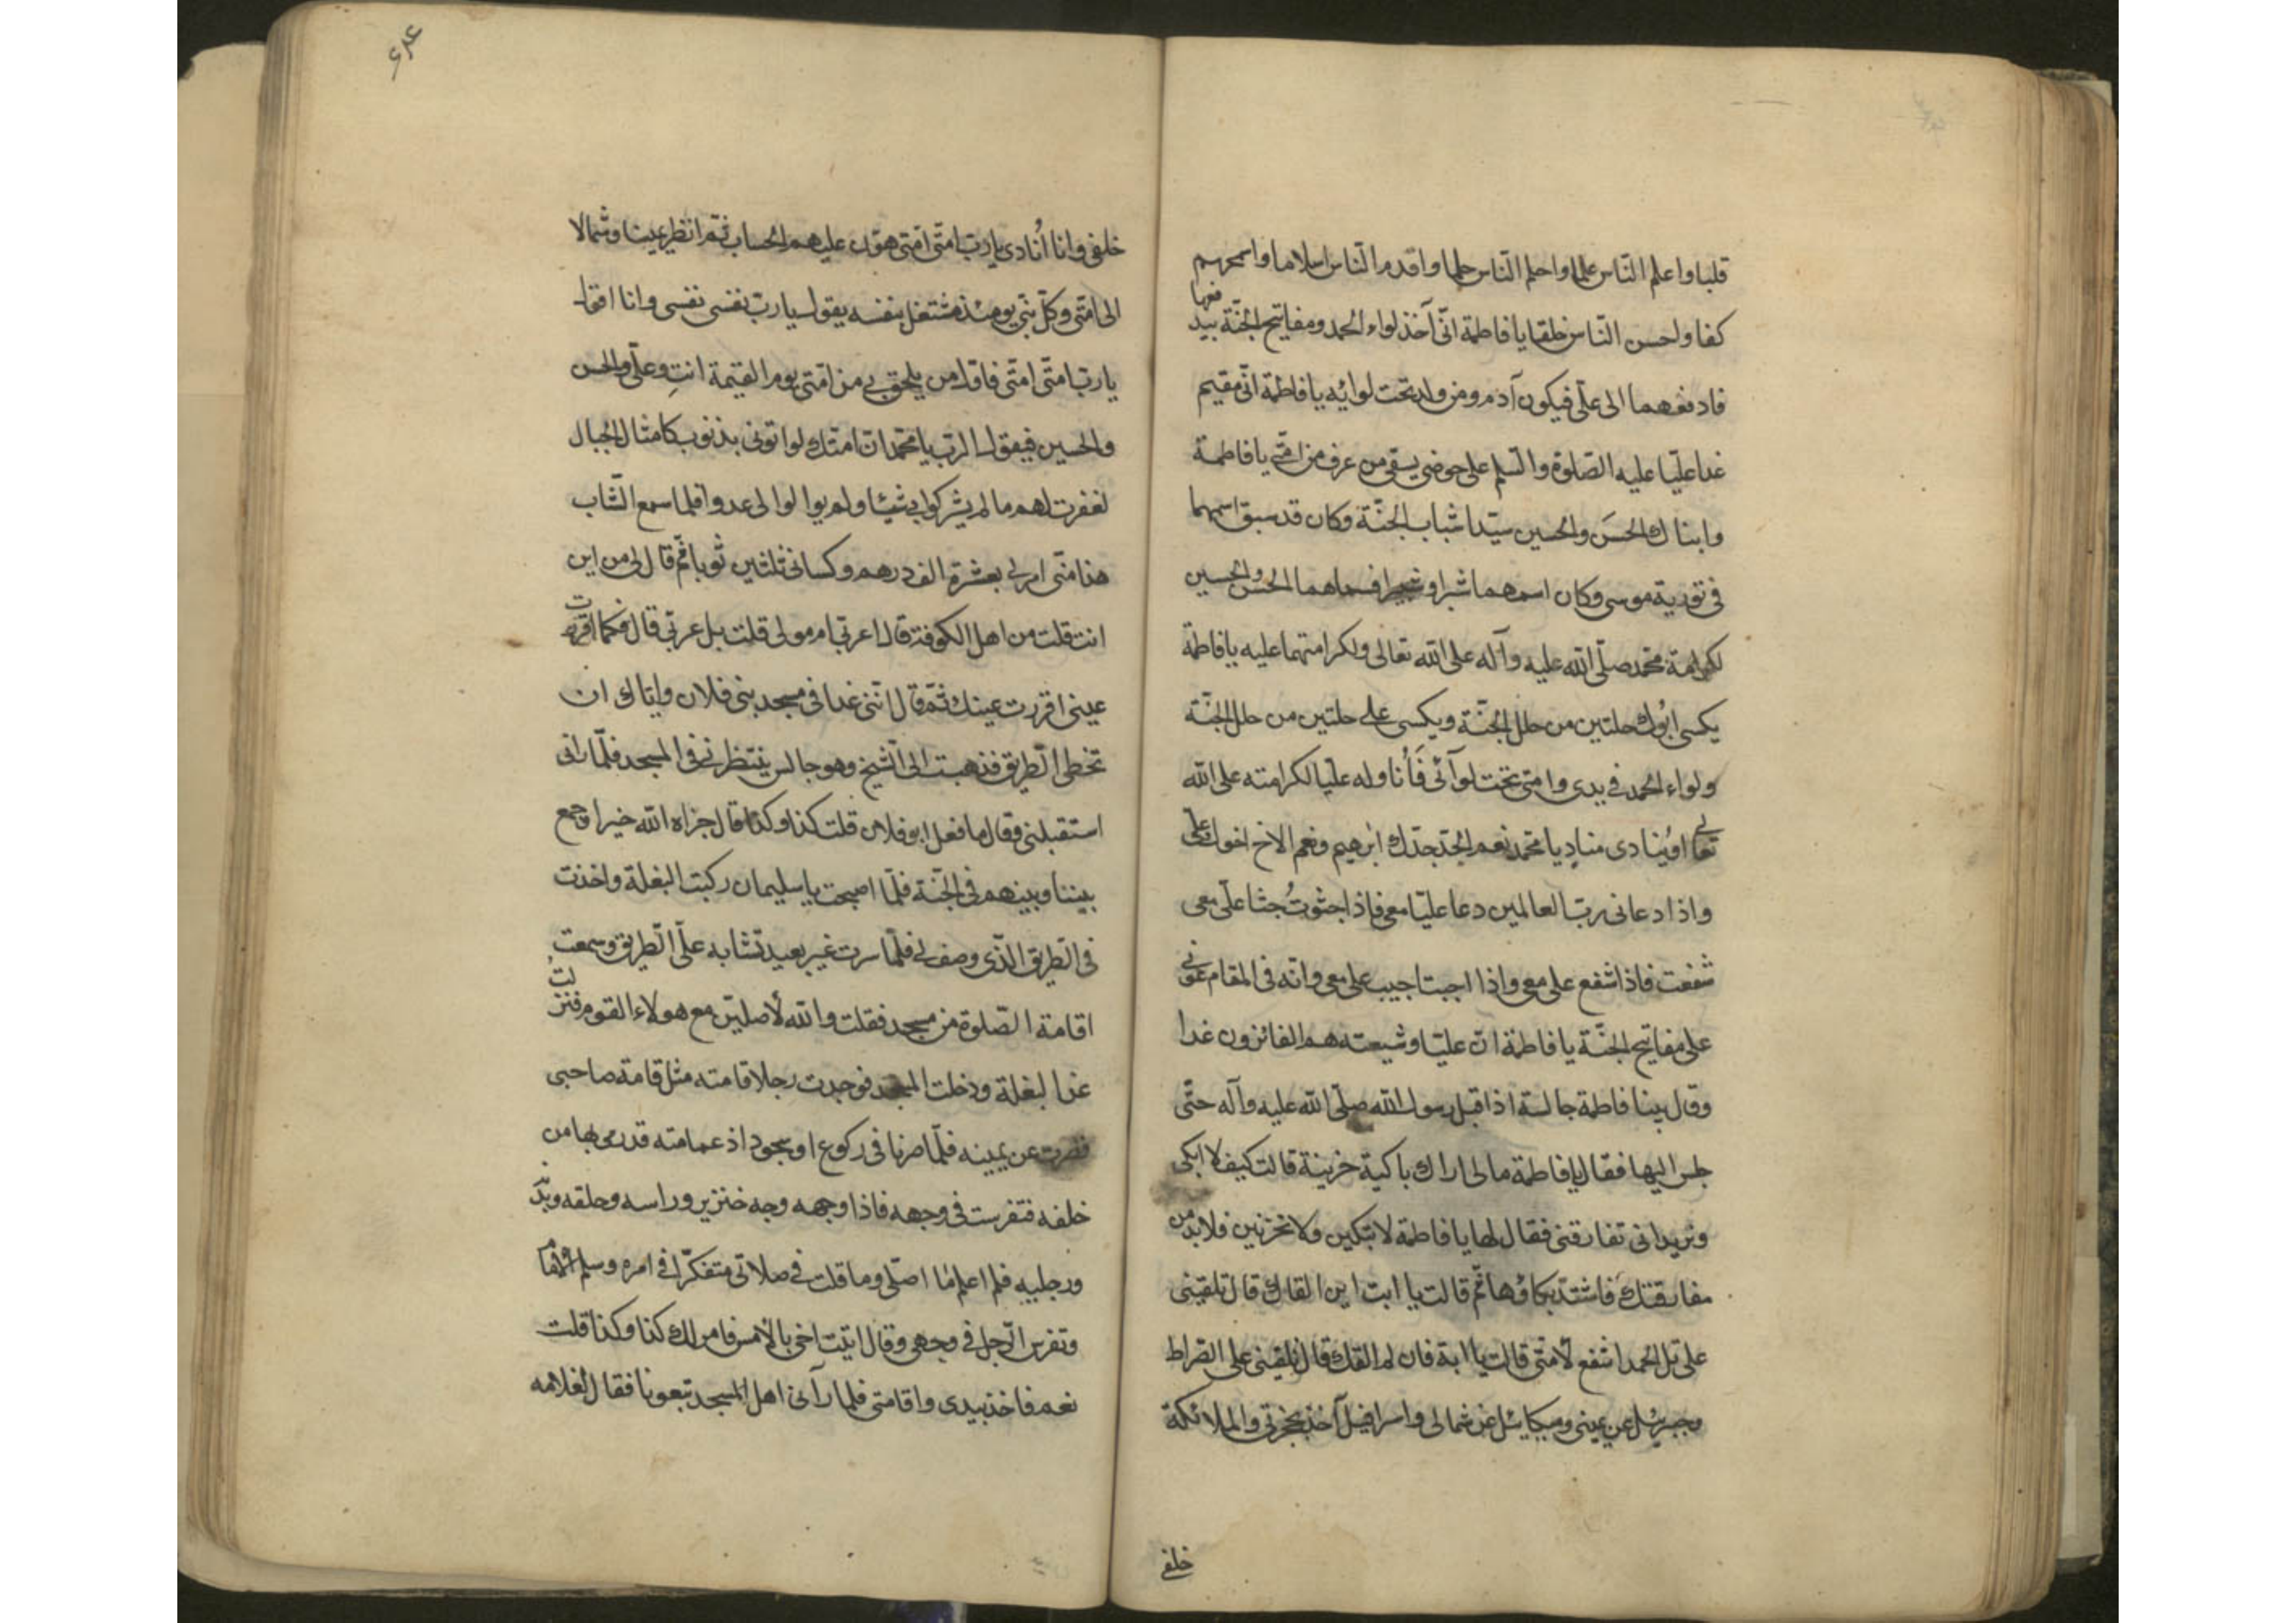 قلبا واعلم الناس علما واحلم الناس حلما واقدم الناس اسلاما واسمحهم
كفا واحسن الناس خلقا يا فاطمة انّى آخذ لواء الحمد ومفاتيح الجنّة بيدى
فادفعها الى علىّ فيكون آدم ومن ولد تحت لوائه يا فاطمة انّى مقيم
غدا عليّا عليه الصّلوة والسّلم على حوضى يسقى من عرف من امّتى يا فاطمة
وابناك الحسَن والحسين سيّدا شباب الجنّة وكان قد سبق اسمهما
فى تورية موسى وكان اسمهما شبرا وشبيرا فسماهما الحسن والحسين
لكرامة محمّد صلّى الله عليه وآله على الله تعالى ولكرامتهما عليه يا فاطمة
يكسى ابُوك حلتين من حلل الجنّة ويكسى على حلتين من حلل الجنّة
ولواء الحمد فى يدى وامتى تحت لوآئى فَأُناوله عليّا لكرامته على الله
تعالى وينادى منادٍ يا محمّد نعم الجدّ جدّك ابرهيم ونعم الاخ اخوك على
واذا دعانى ربّ العالمين دعا عليّا معى فاذا جثوتُ جثا علىّ معى
شفعت فاذا شفع على معى واذا اجبت اجيب على معى وانّه فى المقام عونى
على مفاتيح الجنّة يا فاطمة انّ عليّا وشيعته هم الفائزون غدا
وقال بينا فاطمة جالسة اذ اقبل رسول الله صلّى الله عليه وآله حتّى
جلس اليها فقال يا فاطمة مالى اراك باكية حزينة قالت كيف لا ابكى
وتريد ان تفارقنى فقال لها يا فاطمة لا تبكين ولا تحزنين فلا بدّ من
مفارقتك فاشتدّ بكاؤها ثمّ قالت يا ابت اين القاك قال تلقينى
على تل الحمد اشفع لأمّتى قالت يا ابة فان لم القك قال تلقينى على الصّراط
وجبرئيل عن يمينى وميكائيل عن شمالى واسرافيل آخذ بحجزتى والملائكة
خلفى
خلفى وانا اُنادى يا ربّ امّتى امّتى هوّن عليهم الحساب ثمّ انظر يمينا وشمالا
الى امّتى وكلّ نبّى يومئذ مشتغل بنفسه يقول يا ربّ نفسى نفسى وانا اقول
يا ربّ امّتى امّتى فاوّل من يلحق بى من امّتى يوم القيمة انتِ وعلىّ والحسن
والحسين فيقول الربّ يا محمّد انّ امّتك لو اتونى بذنوب كامثال الجبال
لغفرت لهم ما لم يشركوا بى شيئا ولم يوالوا لى عدوا فلما سمع الشّاب
هذا منّى امر لى بعشرة الف درهم وكسانى ثلثين ثوبا ثمّ قال لى من اين
انت قلت من اهل الكوفة قال اعربّى ام مولى قلت بل عربّى قال فكما اقررت
عينى اقررت عينك ثمّ قال ائتنى غدا فى مسجد بنى فلان وايّاك ان
تخطى الطّريق فذهبت الى الشّيخ وهو جالس ينتظرنى فى المسجد فلمّا رانى
استقبلنى وقال ما فعل ابو فلان قلت كذا وكذا قال جزاه الله خيرا وجمع
بيننا وبينهم فى الجنّة فلمّا اصبحت يا سليمان ركبت البغلة واخذت
فى الطّريق الّذى وصف لى فلمّا سرت غير بعيد تشابه علىّ الطّريق وسمعت
اقامة الصّلوة من مسجد فقلت والله لأصلّينّ مع هولاء القوم فنزلتُ
عن البغلة ودخلت المسجد فوجدت رجلا قامته مثل قامة صاحبى
فصرت عن يمينه فلمّا صرنا فى ركوع او سجود اذ عمامته قد رمى بها من
خلفه فتفرست فى وجهه فاذا وجهه وجه خنزير وراسه وحلقه ويدَيه
ورجليه فلم اعلم ما اصلّى وما قلت فى صلاتى متفكّرا فى امره وسلم الامام
وتفرس الرّجل فى وجهى وقال اتيت اخى بالامس فامر لك كذا وكذا قلت
نعم فاخذ بيدى واقامنى فلما رآنى اهل المسجد تبعونا فقال لغلامه